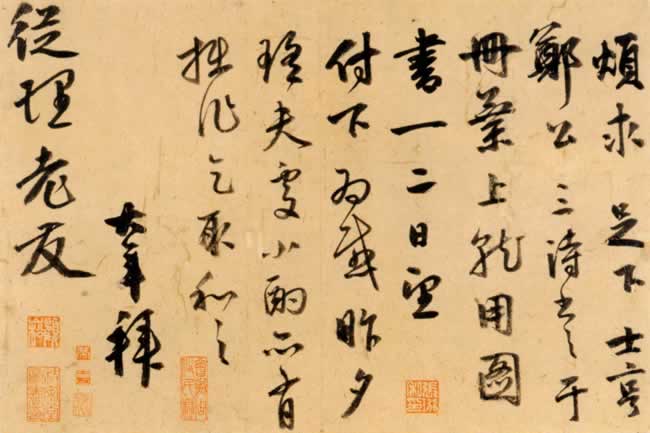 煩求足下士
鄭公三詩書之于
冊葉上就用圖
書一二日望
付下為感昨夕
夫處小酌亦有
拙作乞取和之
大年拜
從理老友